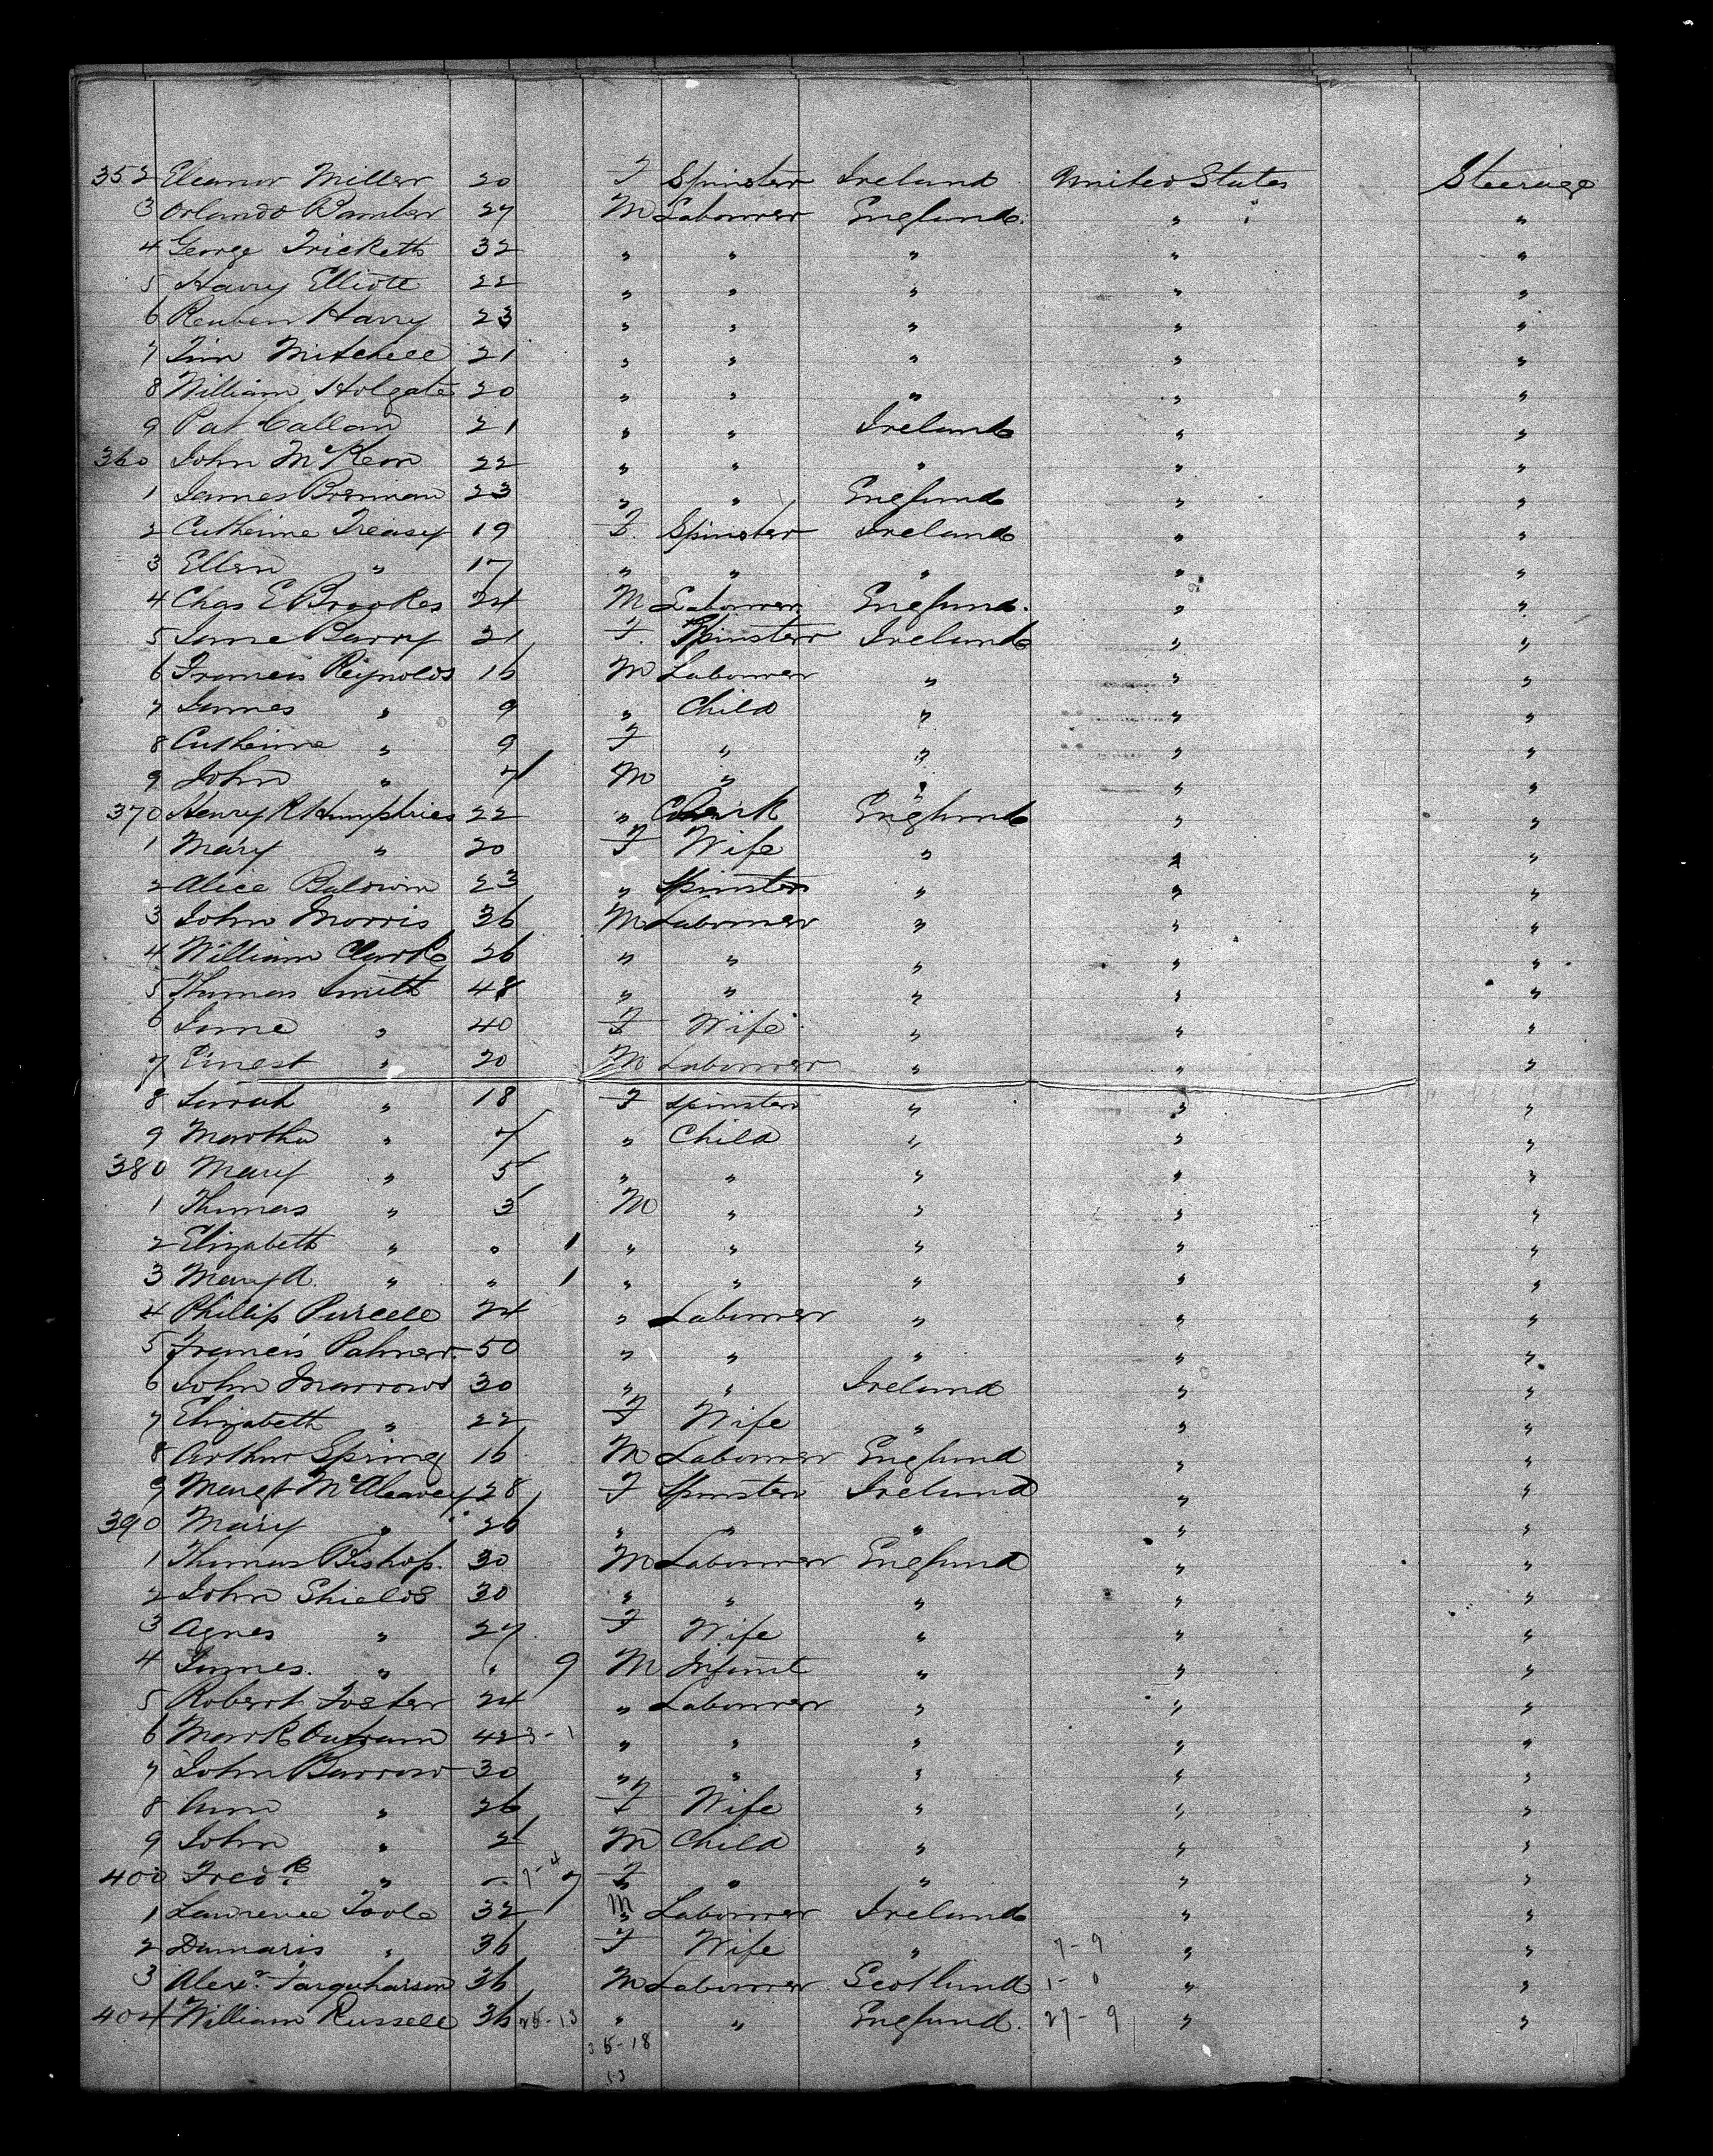 352 Eleanor Miller 20 F Spinster Ireland United States Steerage
3 Orlando Bamber 27 M Labourer England " "
4 George Tricketts 32 " " " " "
5 Harry Elliott 22 " " " " "
6 Reuben Harry 23 " " " " "
7 Tim Mitchell 21 " " " " "
8 William Holgate 20 " " " " "
9 Pat Callan 21 " " Ireland " "
360 John McKeon 22 " " " " "
1 James Brennan 23 " " England " "
2 Catherine Treasy 19 F Spinster Ireland " "
3 Ellen " 17 " " " " "
4 Chas E Brookes 24 M Labourer England " "
5 Jane Barry 21 F Spinster Ireland " "
6 Francis Reynolds 16 M Labourer " " "
7 James " 9 " Child " " "
8 Catherine " 9 F " " " "
9 John " 7 M " " " "
370 Henry R Humphries 22 " Clerk England " "
1 Mary " 20 F Wife " " "
2 Alice Baldwin 23 " Spinster " " "
3 John Morris 36 M Labourer " " "
4 William Clarke 26 " " " " "
5 Thomas Smith 48 " " " " "
6 Jane " 40 F Wife " " "
7 Ernest " 20 M Labourer " " "
8 Sarah " 18 F Spinster " " "
9 Martha " 7 " Child " " "
380 Mary " 5 " " " " "
1 Thomas " 3 M " " " "
2 Elizabeth " " 1 " " " " "
3 Mary A. " " 1 " " " " "
4 Phillip Purcell 24 " Labourer " " "
5 Francis Palmer 50 " " " " "
6 John Marrow 30 " " Ireland " "
7 Elizabeth " 22 F Wife " " "
8 Arthur Spring 16 M Labourer England " "
9 Margt McAleavey 28 F Spinster Ireland " "
390 Mary " 26 " " " " "
1 Thomas Bishop 30 M Labourer England " "
2 John Shields 30 " " " " "
3 Agnes " 27 F Wife " " "
4 James " " 9 M Infant " " "
5 Robert Foster 24 " Labourer " " "
6 Mark Outram 42 3-1 " " " " "
7 John Barrow 30 " " " " "
8 Ann " 26 F Wife " " "
9 John " 2 M Child " " "
400 Fredk " - 7-4 7 F " " " "
1 Lawrence Toole 32 M Labourer Ireland " "
2 Damaris " 36 F Wife " 7-9 " "
3 Alexr Farquharson 36 M Labourer Scotland 1-0 " "
404 William Russell 36 25-13 " " England 27-9 " "
35-18